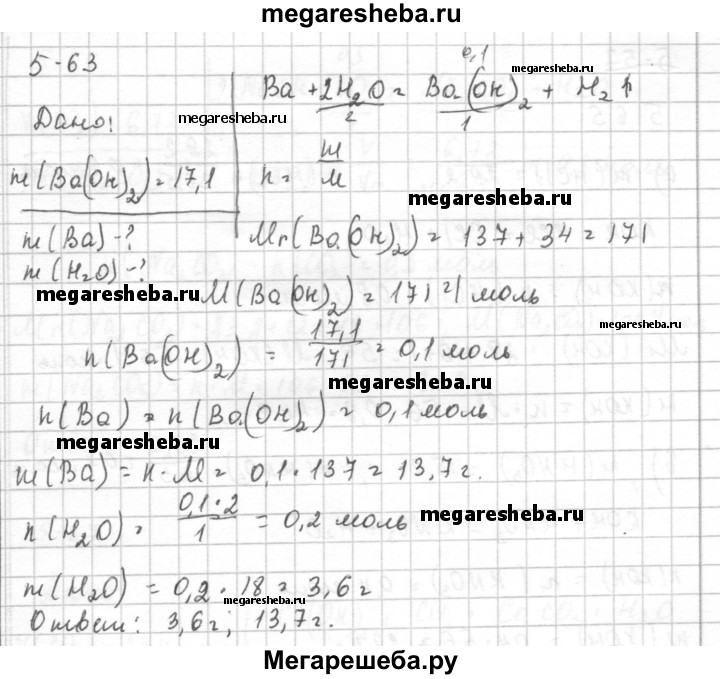 megaresheba.ru
5-63
0,1
megaresheba.ru
Ba + 2H₂O = Ba(OH)₂ + H₂↑
2 1
Дано:
megaresheba.ru
m(Ba(OH)₂) = 17,1
n = m/M
megaresheba.ru
m(Ba) - ?
Mr(Ba(OH)₂) = 137 + 34 = 171
m(H₂O) - ?
megaresheba.ru
M(Ba(OH)₂) = 171 г/моль
megaresheba.ru
n(Ba(OH)₂) = 17,1/171 = 0,1 моль
megaresheba.ru
n(Ba) = n(Ba(OH)₂) = 0,1 моль
megaresheba.ru
m(Ba) = n·M = 0,1·137 = 13,7 г.
n(H₂O) = 0,1·2/1 = 0,2 моль
megaresheba.ru
m(H₂O) = 0,2·18 = 3,6 г
megaresheba.ru
Ответ: 3,6 г; 13,7 г.
Мегарешеба.ру